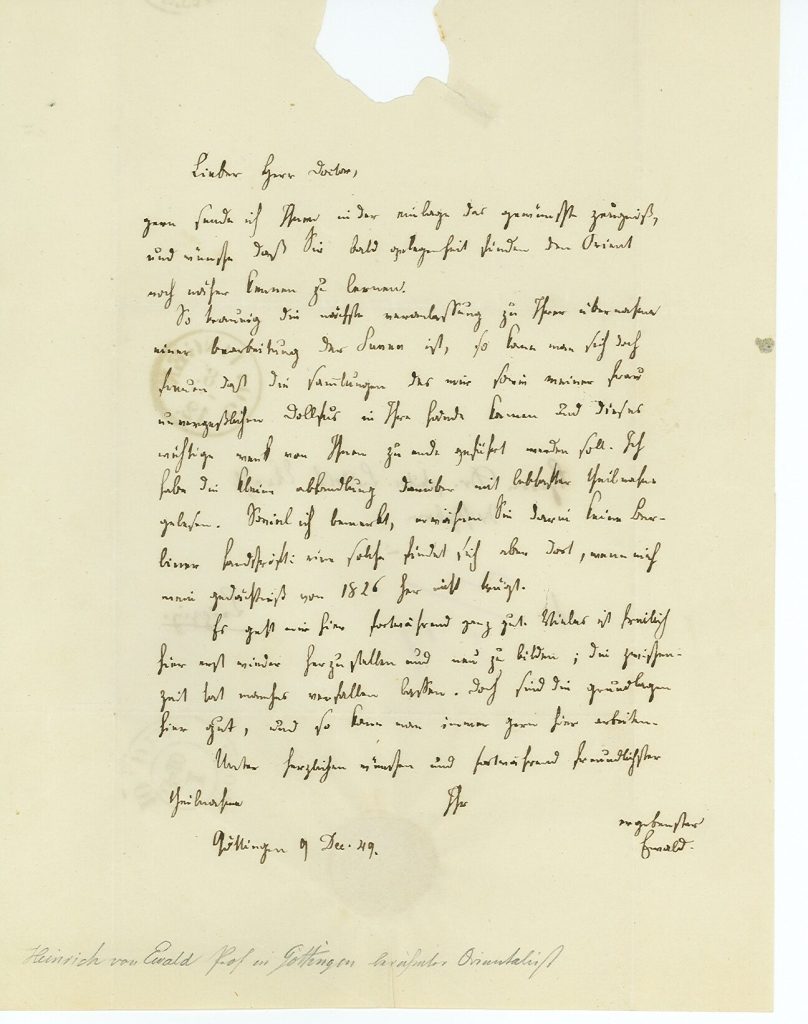 Lieber Herr Doctor,
gern sende ich Ihnen in der einlage das gewünschte zeugniß,
und wünsche daß Sie bald gelegenheit finden den Orient
noch näher kennen zu lernen.
So traurig die nächste veranlassung zu Ihrer übernahme
einer bearbeitung der ist, so kann man sich doch
freuen daß die samlungen des mir sowie meiner frau
unvergeßlichen Dollfus in Ihre hände kamen und dieses
wichtige werk von Ihnen zu ende geführt werden soll. Ich
habe die kleine abhandlung darüber mit lebhafter theilnahme
gelesen. Soviel ich bemerkt, erwähnen Sie darin keine Ber-
liner handschrift: eine solche findet sich aber dort, wenn mich
mein gedächtniß von 1826 her nicht trügt.
Es geht mir hier fortwährend ganz gut. Vieles ist freilich
hier erst wieder herzustellen und neu zu bilden; die zwischen-
zeit hat manches verfallen lassen. doch sind die grundlagen
hier gut, und so kann man immer gern hier arbeiten.
Unter herzlichen wünschen und fortwährend freundlichster
theilnahme Ihr
ergebenster
Göttingen 9 Dec. 49. Ewald.
Heinrich von Ewald Prof in Göttingen berühmter Orientalist